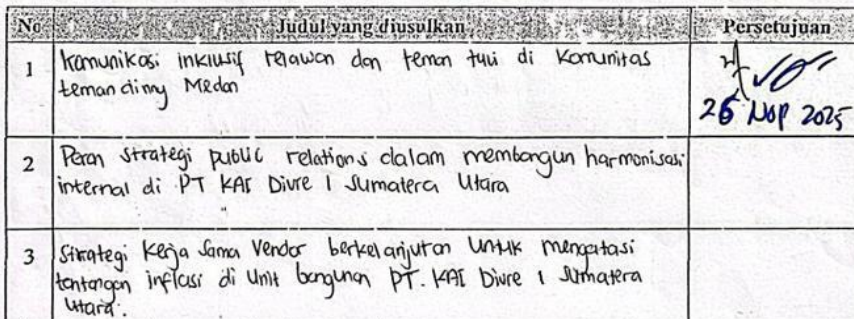 No Judul yang diusulkan Persetujuan
1 Komunikasi inklusif relawan dan teman tuli di Komunitas
teman dinny Medan
26 Nop 2025
2 Peran strategi public relations dalam membangun harmonisasi
internal di PT KAI Divre 1 Sumatera Utara
3 Strategi Kerja Sama Vendor berkelanjutan untuk mengatasi
tantangan inflasi di Unit bangunan PT. KAI Divre 1 Sumatera
Utara.